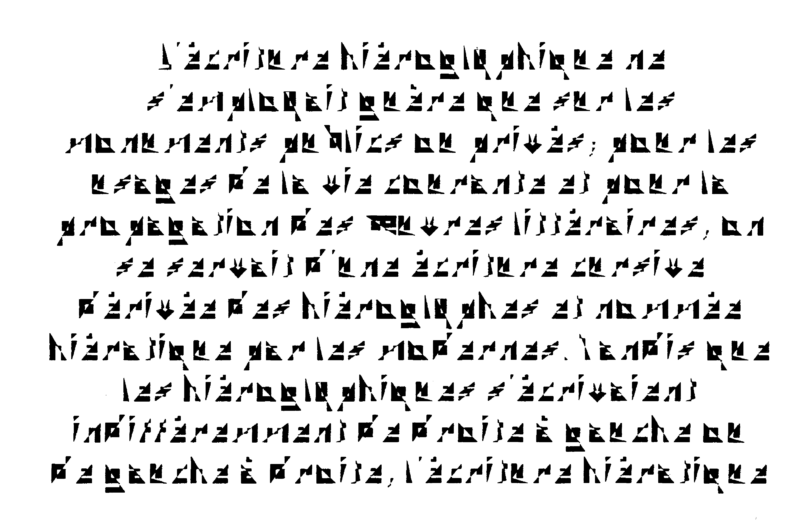 L'écriture hiéroglyphique ne
s'employait guère que sur les
monuments publics ou privés; pour les
usages de la vie courante et pour la
propagation des œuvres littéraires, on
se servait d'une écriture cursive
dérivée des hiéroglyphes et nommée
hiératique par les modernes. Tandis que
les hiéroglyphiques s'écrivaient
indifféremment de droite à gauche ou
de gauche à droite, l'écriture hiératique